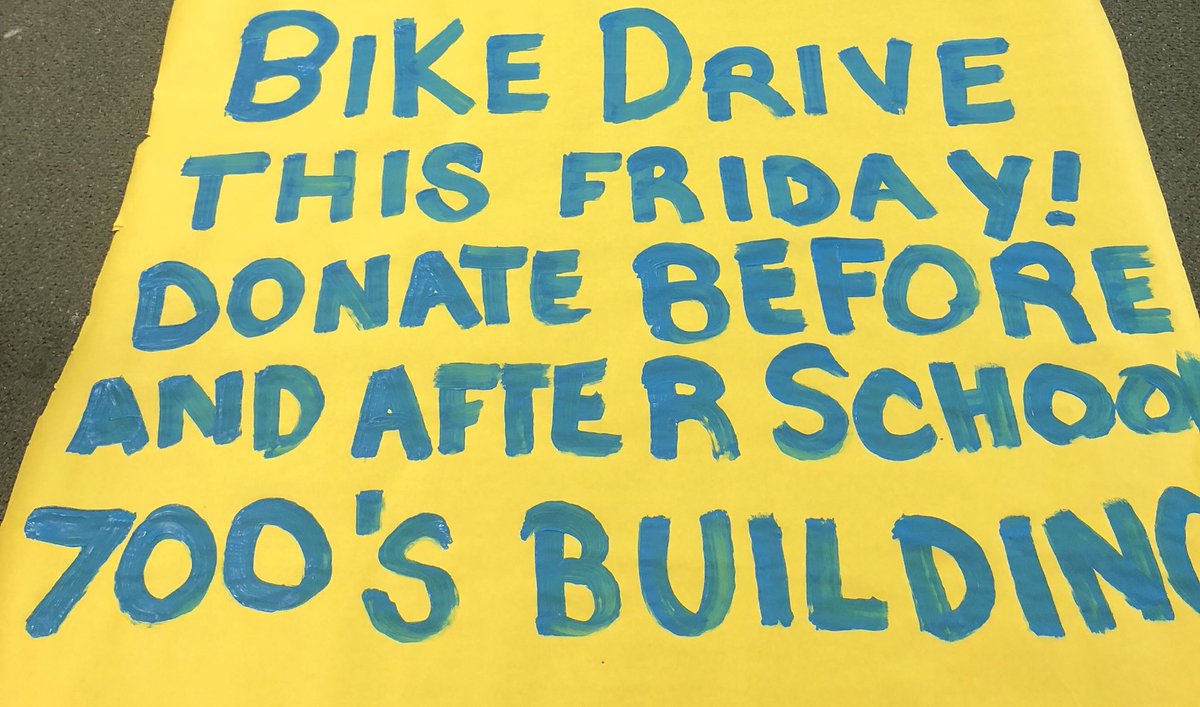 BIKE DRIVE
THIS FRIDAY!
DONATE BEFORE
AND AFTER SCHOOL
700'S BUILDING